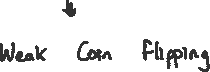 Weak Coin Flipping